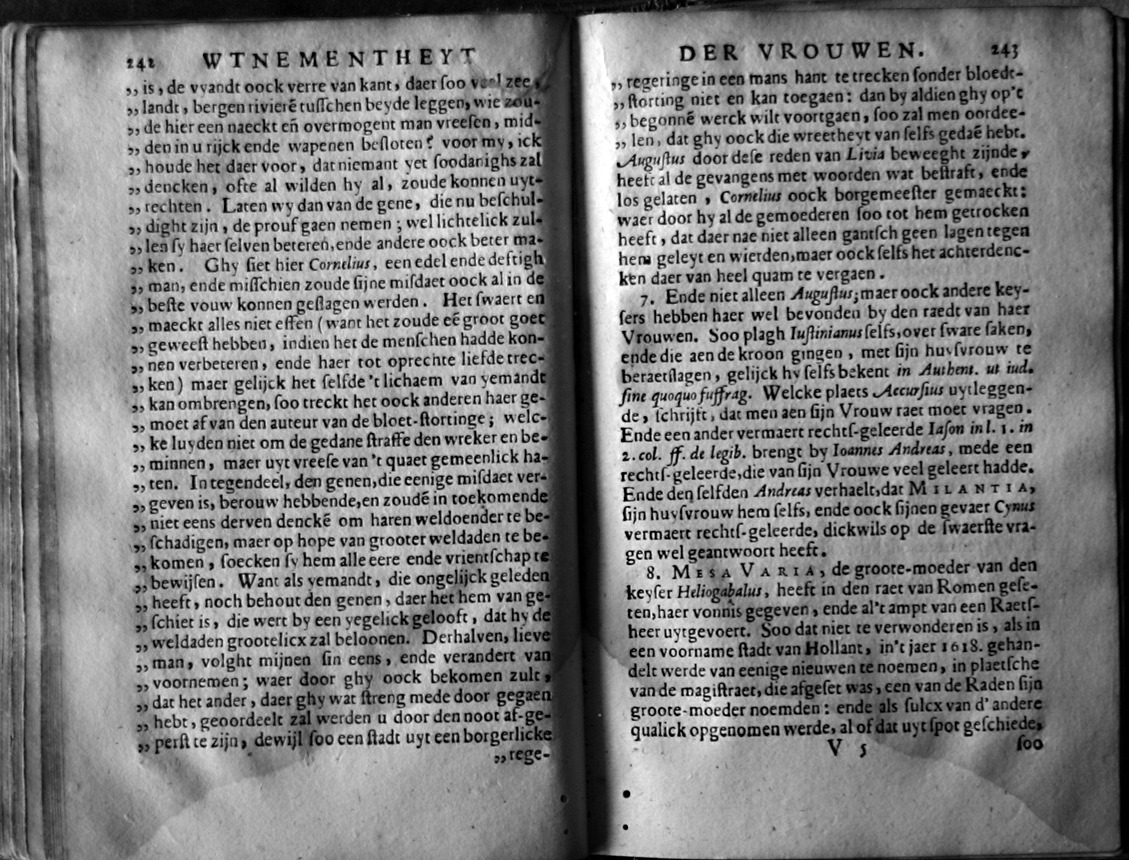 242 WTNEMENTHEYT
„ is, de vyandt oock verre van kant, daer ſoo veel zee,
„ landt, bergen rivierē tuſſchen beyde leggen, wie zou-
„ de hier een naeckt eñ overmogent man vreeſen, mid-
„ den in u rijck ende wapenen beſloten? voor my, ick
„ houde het daer voor, dat niemant yet ſoodanighs zal
„ dencken, ofte al wilden hy al, zoude konnen uyt-
„ rechten. Laten wy dan van de gene, die nu beſchul-
„ dight zijn, de prouf gaen nemen; wel lichtelick zul-
„ len ſy haer ſelven beteren, ende andere oock beter ma-
„ ken. Ghy ſiet hier Cornelius, een edel ende deftigh
„ man, ende miſſchien zoude ſijne miſdaet oock al in de
„ beſte vouw konnen geſlagen werden. Het ſwaert en
„ maeckt alles niet effen (want het zoude eē groot goet
„ geweeſt hebben, indien het de menſchen hadde kon-
„ nen verbeteren, ende haer tot oprechte liefde trec-
„ ken) maer gelijck het ſelfde 't lichaem van yemandt
„ kan ombrengen, ſoo treckt het oock anderen haer ge-
„ moet af van den auteur van de bloet-ſtortinge; welc-
„ ke luyden niet om de gedane ſtraffe den wreker en be-
„ minnen, maer uyt vreeſe van 't quaet gemeenlick ha-
„ ten. In tegendeel, den genen, die eenige miſdaet ver-
„ geven is, berouw hebbende, en zoudē in toekomende
„ niet eens derven denckē om haren weldoender te be-
„ ſchadigen, maer op hope van grooter weldaden te be-
„ komen, ſoecken ſy hem alle eere ende vrientſchap te
„ bewijſen. Want als yemandt, die ongelijck geleden
„ heeft, noch behout den genen, daer het hem van ge-
„ ſchiet is, die wert by een yegelick gelooft, dat hy de
„ weldaden grootelicx zal beloonen. Derhalven, lieve
„ man, volght mijnen ſin eens, ende verandert van
„ voornemen; waer door ghy oock bekomen zult,
„ dat het ander, daer ghy wat ſtreng mede door gegaen
„ hebt, geoordeelt zal werden u door den noot af-ge-
„ perſt te zijn, dewijl ſoo een ſtadt uyt een borgerlicke
„ rege-
DER VROUWEN. 243
„ regeringe in een mans hant te trecken ſonder bloedt-
„ ſtorting niet en kan toegaen: dan by aldien ghy op't
„ begonnē werck wilt voortgaen, ſoo zal men oordee-
„ len, dat ghy oock die wreetheyt van ſelfs gedaē hebt.
Auguſtus door deſe reden van Livia beweeght zijnde,
heeft al de gevangens met woorden wat beſtraft, ende
los gelaten, Cornelius oock borgemeeſter gemaeckt:
waer door hy al de gemoederen ſoo tot hem getrocken
heeft, dat daer nae niet alleen gantſch geen lagen tegen
hem geleyt en wierden, maer oock ſelfs het achterdenc-
ken daer van heel quam te vergaen.
7. Ende niet alleen Auguſtus, maer oock andere key-
ſers hebben haer wel bevonden by den raedt van haer
Vrouwen. Soo plagh Iuſtinianus ſelfs, over ſware ſaken,
ende die aen de kroon gingen, met ſijn huyſvrouw te
beraetſlagen, gelijck hy ſelfs bekent in Authent. ut iud.
ſine quoquo ſuffrag. Welcke plaets Accurſius uytleggen-
de, ſchrijft, dat men aen ſijn Vrouw raet moet vragen.
Ende een ander vermaert rechtſ-geleerde Iaſon in l. 1. in
2. col. ff. de legib. brengt by Ioannes Andreas, mede een
rechtſ-geleerde, die van ſijn Vrouwe veel geleert hadde.
Ende den ſelfden Andreas verhaelt, dat MILANTIA,
ſijn huyſvrouw hem ſelfs, ende oock ſijnen gevaer Cynus
vermaert rechtſ-geleerde, dickwils op de ſwaerſte vra-
gen wel geantwoort heeft.
8. MESA VARIA, de groote-moeder van den
keyſer Heliogabalus, heeft in den raet van Romen geſe-
ten, haer vonnis gegeven, ende al't ampt van een Raetſ-
heer uytgevoert. Soo dat niet te verwonderen is, als in
een voorname ſtadt van Hollant, in't jaer 1618. gehan-
delt werde van eenige nieuwen te noemen, in plaetſche
van de magiſtraet, die afgeſet was, een van de Raden ſijn
groote-moeder noemden: ende als ſulcx van d'andere
qualick opgenomen werde, al of dat uyt ſpot geſchiede,
V 5 ſoo